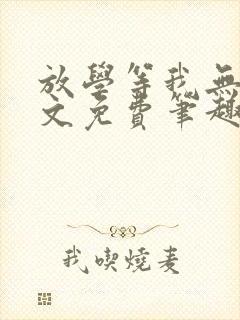 放學等我無
文免費筆趣
我喫燒麦